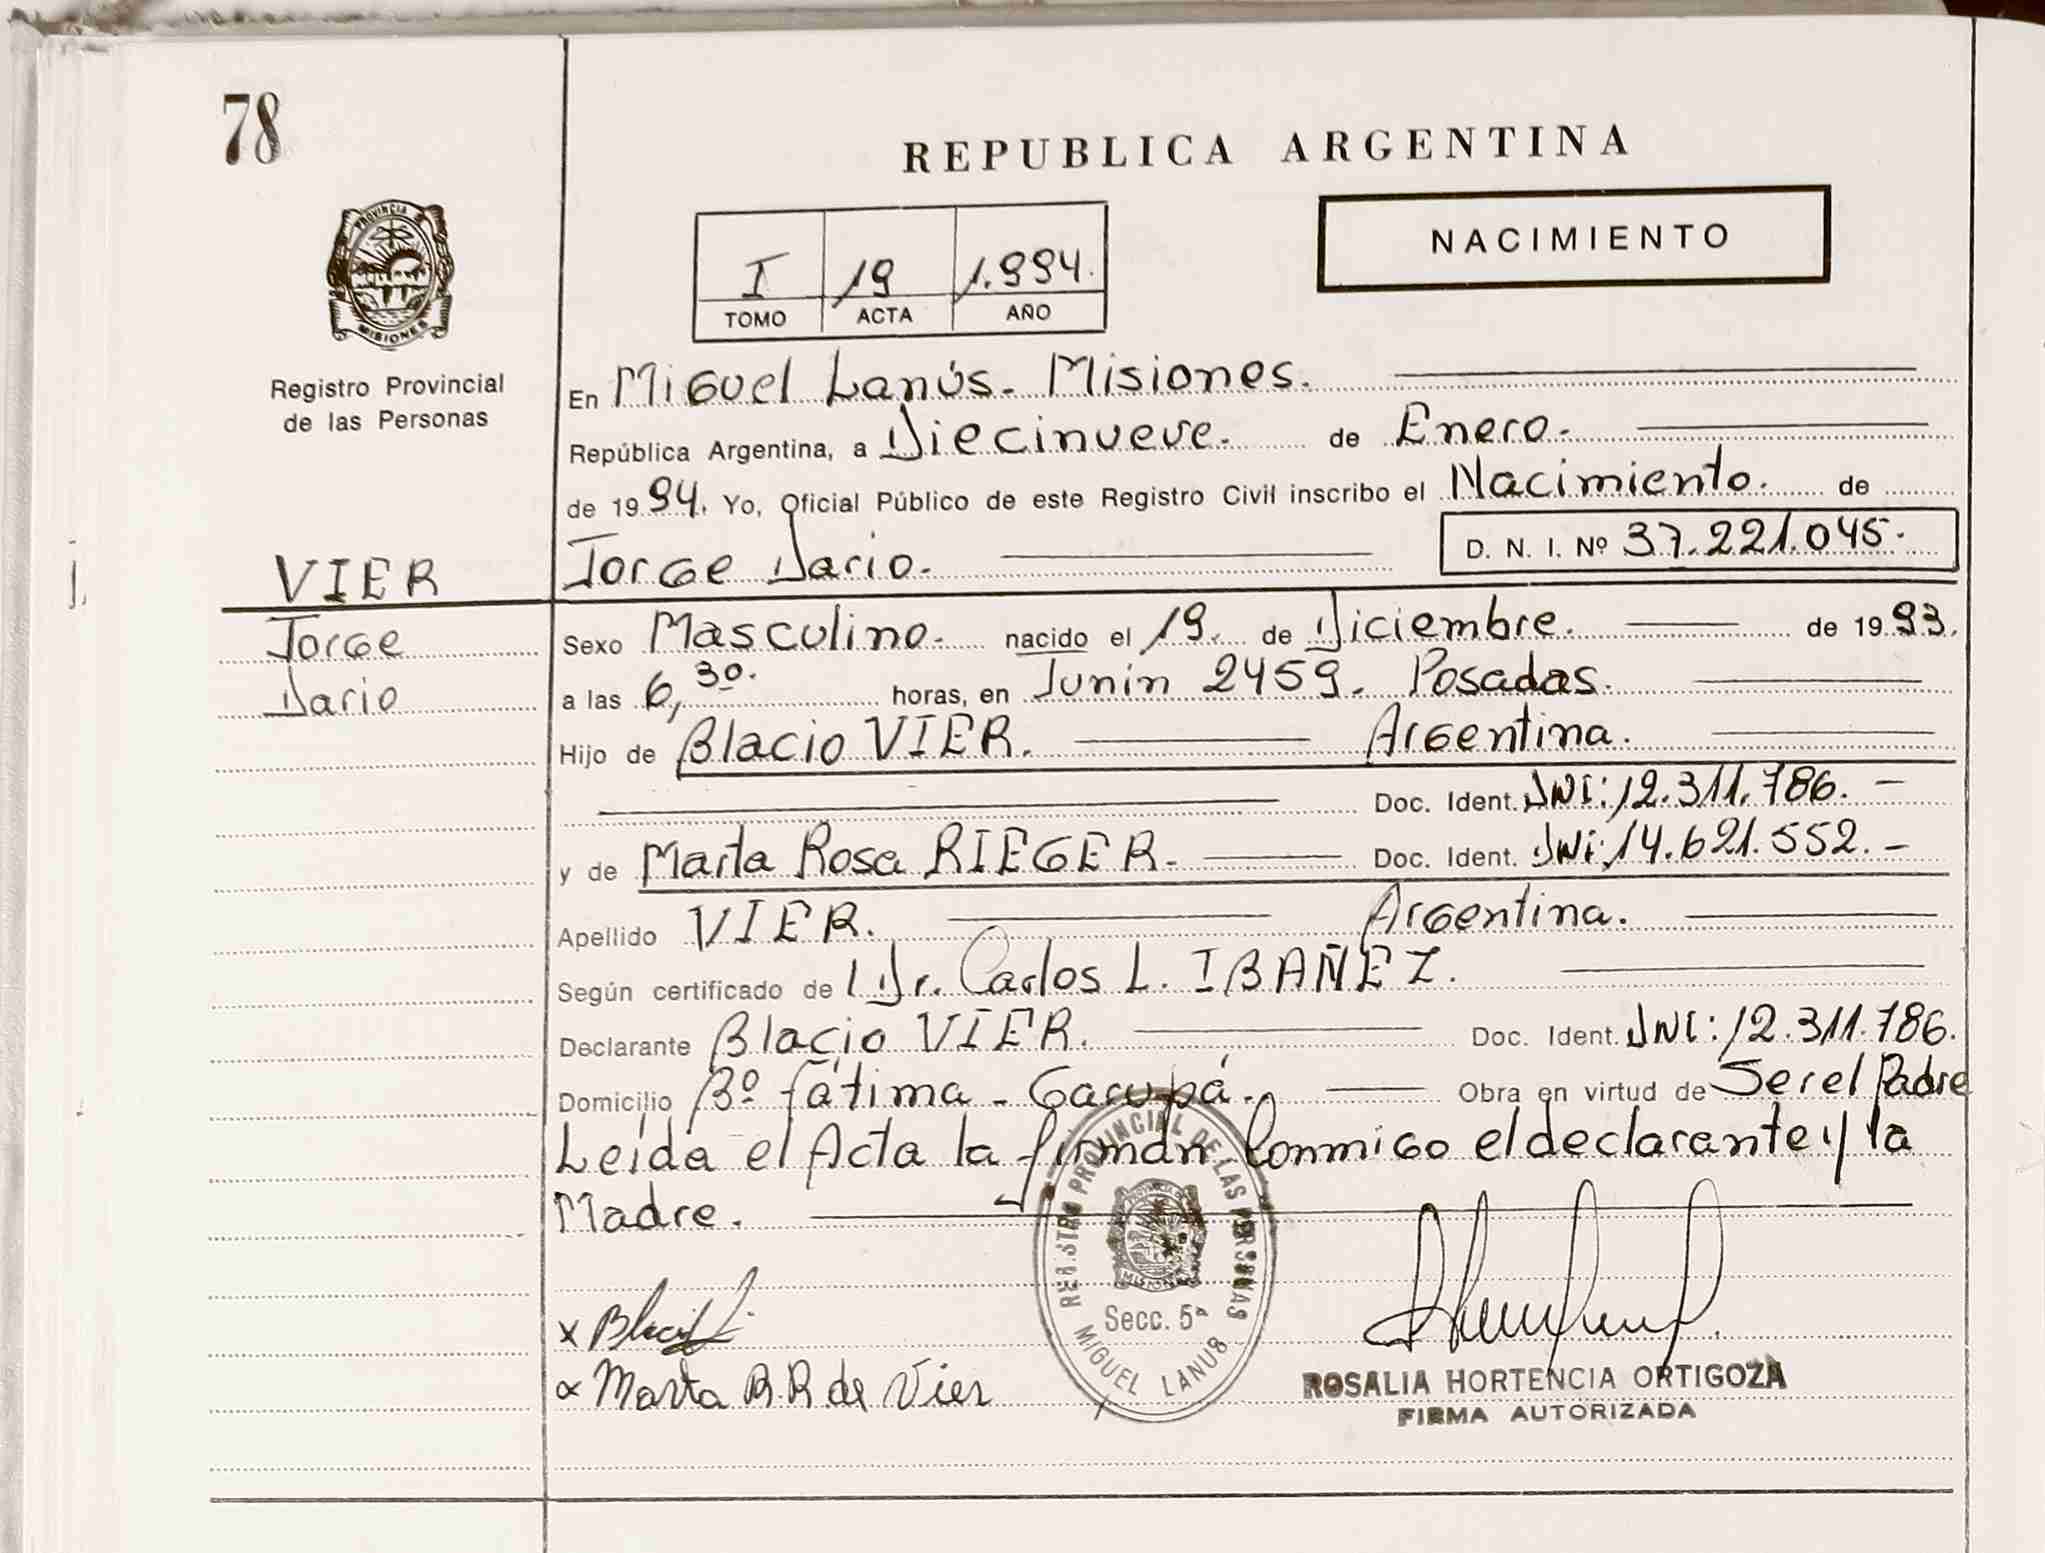 78
REPUBLICA ARGENTINA
NACIMIENTO
I 19 1.994.
TOMO ACTA AÑO
PROVINCIA DE
MISIONES
Registro Provincial
de las Personas
En Miguel Lanús. Misiones.
República Argentina, a Diecinueve. de Enero.
de 1994. Yo, Oficial Público de este Registro Civil inscribo el Nacimiento. de
Jorge Dario. D. N. I. Nº 37.221.045.
VIER
Jorge
Dario
Sexo Masculino. nacido el 19. de Diciembre. de 1993.
a las 6,30. horas, en Junin 2459. Posadas.
Hijo de Blacio VIER. Argentina.
Doc. Ident. DNI: 12.311.786. -
y de Marta Rosa RIEGER. Doc. Ident. DNi: 14.621.552. -
Apellido VIER. Argentina.
Según certificado de Dr. Carlos L. IBAÑEZ.
Declarante Blacio VIER. Doc. Ident. DNI: 12.311.786.
Domicilio Bº Fátima - Garupá. Obra en virtud de Ser el Padre
Leida el Acta la firman Conmigo el declarante y la
Madre.
REGISTRO PROVINCIAL DE LAS PERSONAS
MISIONES
Secc. 5ª
MIGUEL LANUS
x
Marta R. R de Vier
ROSALIA HORTENCIA ORTIGOZA
FIRMA AUTORIZADA